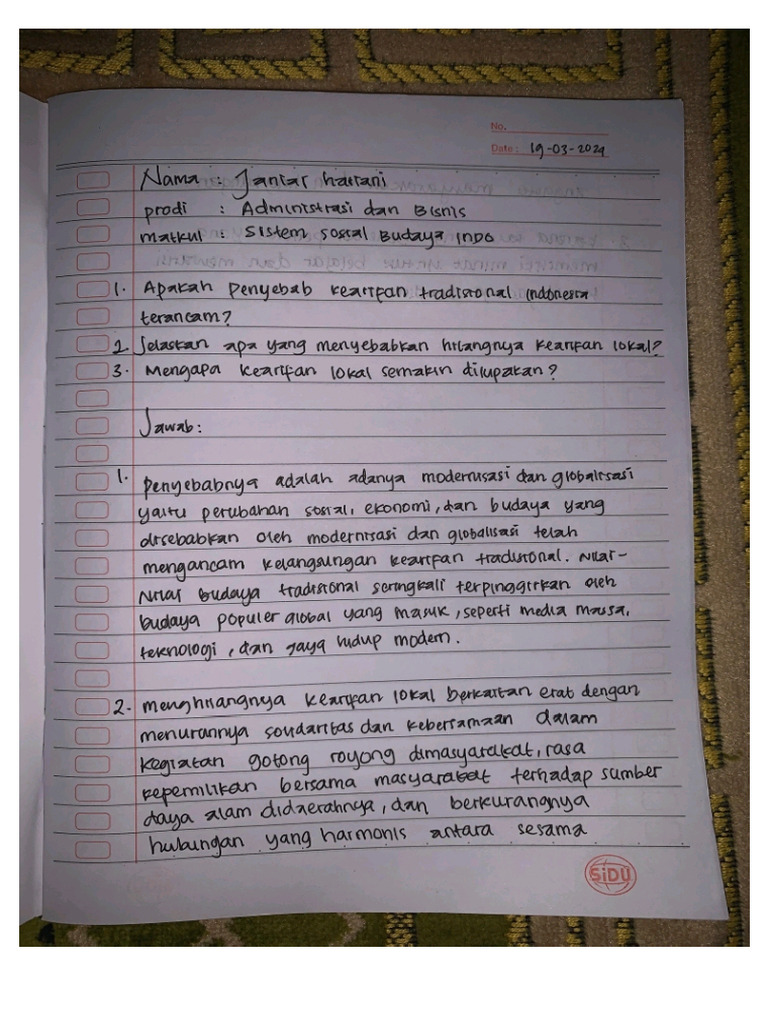 No.
Date : 19-03-2024
Nama : Janiar hariani
prodi : Administrasi dan Bisnis
matkul : Sistem sosial Budaya Indo
1. Apakah penyebab kearifan tradisional indonesia
terancam?
2. Jelaskan apa yang menyebabkan hilangnya kearifan lokal?
3. Mengapa kearifan lokal semakin dilupakan?
Jawab:
1. penyebabnya adalah adanya modernisasi dan globalisasi
yaitu perubahan sosial, ekonomi, dan budaya yang
disebabkan oleh modernisasi dan globalisasi telah
mengancam kelangsungan kearifan tradisional. Nilai-
Nilai budaya tradisional seringkali terpinggirkan oleh
budaya populer global yang masuk, seperti media massa,
teknologi, dan gaya hidup modern.
2. menghilangnya kearifan lokal berkaitan erat dengan
menurannya solidaritas dan kebersamaan dalam
kegiatan gotong royong dimasyarakat, rasa
kepemilikan bersama masyarakat terhadap sumber
daya alam didaerahnya, dan berkurangnya
hubungan yang harmonis antara sesama
SiDU